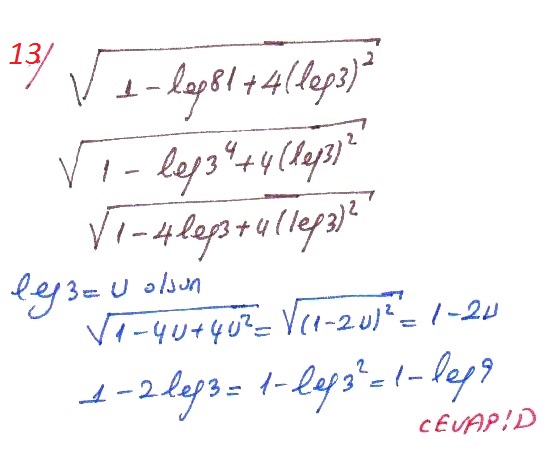 13/ √(1 - log81 + 4(log3)²)
√(1 - log3⁴ + 4(log3)²)
√(1 - 4log3 + 4(log3)²)
log3 = U olsun
√(1 - 4U + 4U²) = √((1 - 2U)²) = 1 - 2U
1 - 2log3 = 1 - log3² = 1 - log9
CEVAP!D